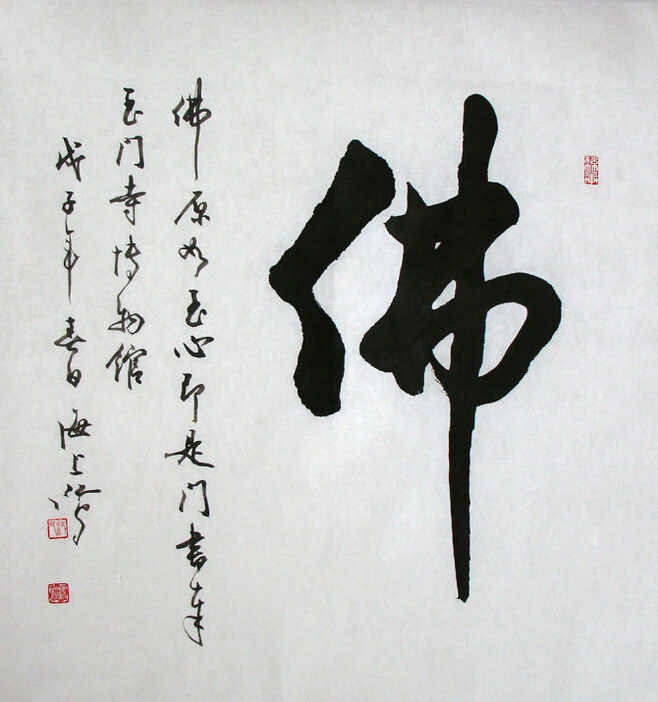 佛
佛原如玉心即是门书奉
玉门寺博物馆
戊子年春日海上